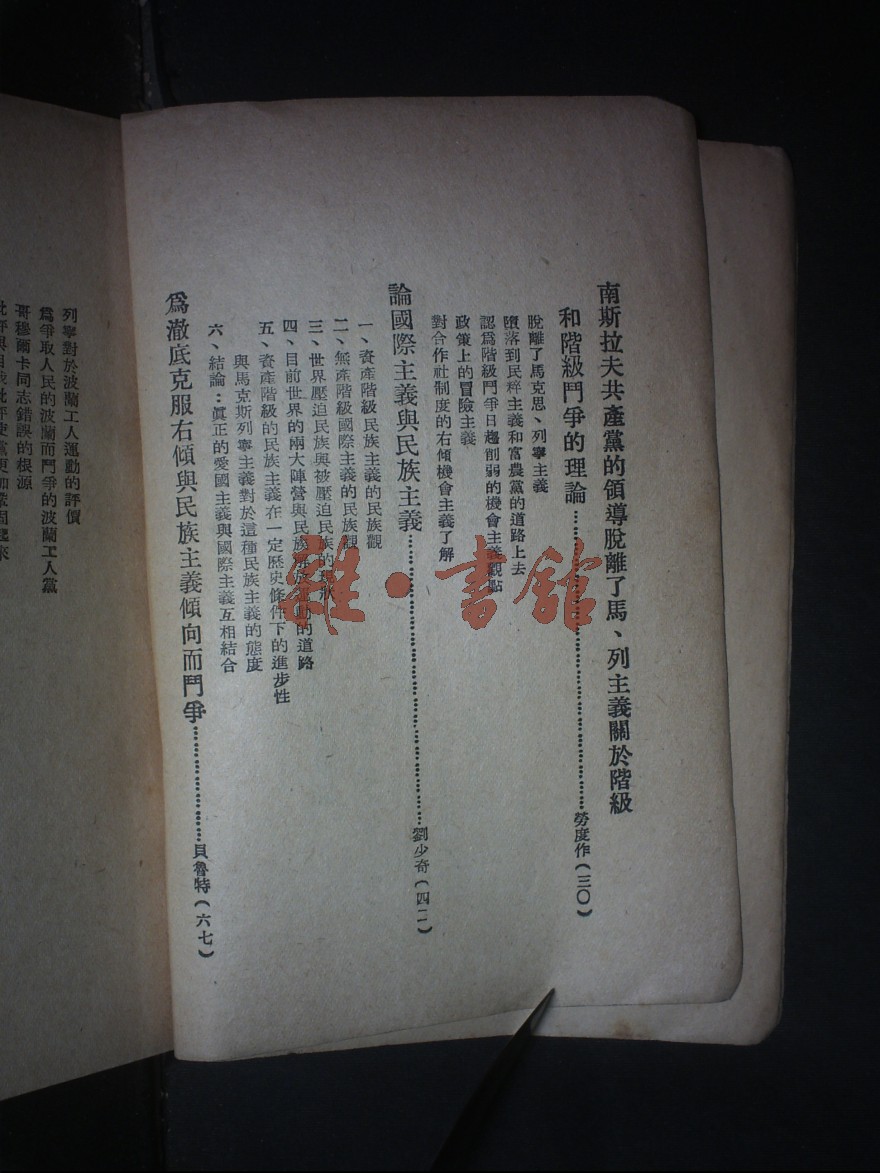 南斯拉夫共產黨的領導脫離了馬、列主義關於階級
和階級鬥爭的理論……勞度作(三〇)
脫離了馬克思、列寧主義
墮落到民粹主義和富農黨的道路上去
認爲階級鬥爭日趨削弱的機會主義觀點
政策上的冒險主義
對合作社制度的右傾機會主義了解
論國際主義與民族主義……劉少奇(四二)
一、資產階級民族主義的民族觀
二、無產階級國際主義的民族觀
三、世界壓迫民族與被壓迫民族的現狀
四、目前世界的兩大陣營與民族解放運動的道路
五、資產階級的民族主義在一定歷史條件下的進步性
與馬克斯列寧主義對於這種民族主義的態度
六、結論：眞正的愛國主義與國際主義互相結合
爲澈底克服右傾與民族主義傾向而鬥爭……貝魯特(六七)
列寧對於波蘭工人運動的評價
爲爭取人民的波蘭而鬥爭的波蘭工人黨
哥穆爾卡同志錯誤的根源
雜·書館